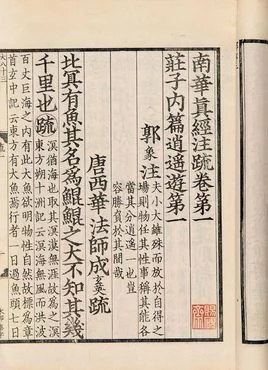 南華真經注疏卷第一
莊子內篇逍遙遊第一
郭象注
夫小大雖殊而放於自得之
場則物任其性事稱其能各
當其分逍遙一也豈
容勝負於其間哉
唐西華法師成玄英疏
北冥有魚其名為鯤鯤之大不知其幾
千里也疏
溟猶海也取其溟漠無涯故謂之溟
東方朔十洲記云溟海無風而洪波
百丈巨海之內有此大魚欲明物性自然故標為章
首玄中記云東方有大魚焉行者一日過魚頭七日